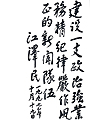 建設一支政治强業
務精紀律嚴作風
正的新聞隊伍
江澤民